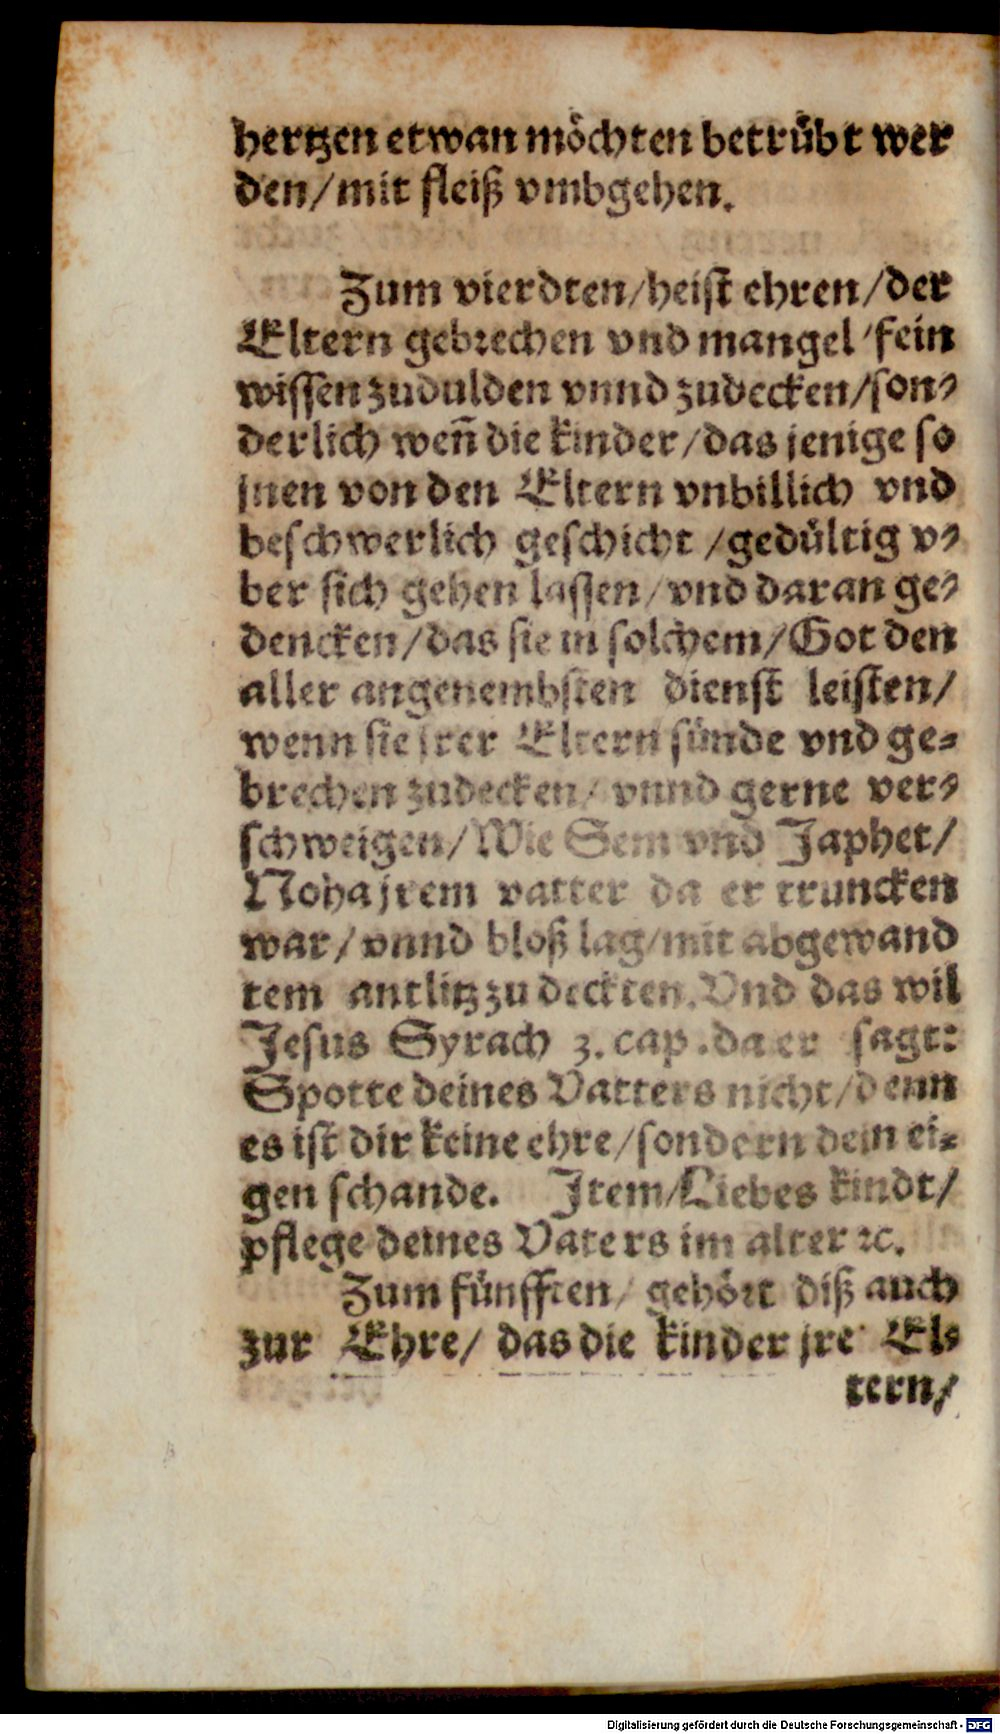 hertzen etwan möchten betrübt wer
den/ mit fleiß vmbgehen.
Zum vierdten/ heist ehren/ der
Eltern gebrechen vnd mangel/ fein
wissen zudulden vnnd zudecken/ son-
derlich wen̄ die kinder/ das jenige so
jnen von den Eltern vnbillich vnd
beschwerlich geschicht/ gedültig v-
ber sich gehen lassen/ vnd daran ge-
dencken/ das sie in solchem/ Got den
aller angenembsten dienst leisten/
wenn sie jrer Eltern sünde vnd ge-
brechen zudecken/ vnnd gerne ver-
schweigen/ Wie Sem vnd Japhet/
Noha jrem vatter da er truncken
war/ vnnd bloß lag/ mit abgewand
tem antlitz zu deckten. Vnd das wil
Jesus Syrach 3. cap. da er sagt:
Spotte deines Vatters nicht/ denn
es ist dir keine ehre/ sondern dein ei-
gen schande. Item/ Liebes kindt/
pflege deines Vaters im alter ꝛc.
Zum fünfften/ gehört diß auch
zur Ehre/ das die kinder jre El-
tern/
Digitalisierung gefördert durch die Deutsche Forschungsgemeinschaft - DFG